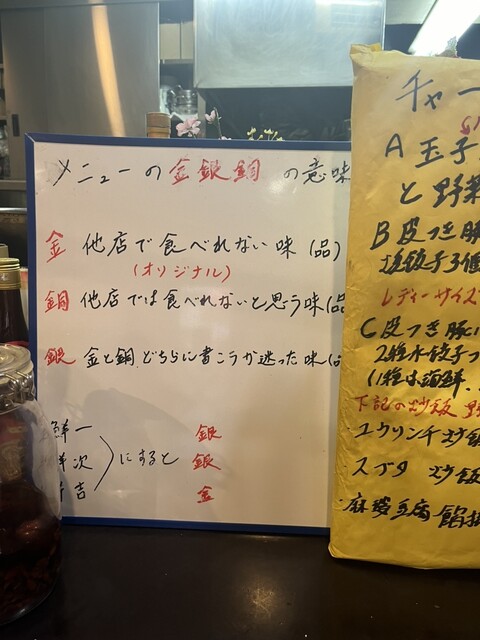 メニューの金銀銅の意味
金 他店で食べれない味(品)
(オリジナル)
銅 他店では食べれないと思う味(品
銀 金と銅、どちらに書こうか迷った味(
鮮一
鮮次
吉
にすると
銀
銀
金
チャー
A玉子
と野菜
B皮つき豚
塩餃子3個
レディーサイズ
C皮つき豚
2種水餃子
(1種は海鮮
下記の炒飯
ユウリンチ炒飯
スブタ 炒飯
麻婆豆腐餡掛